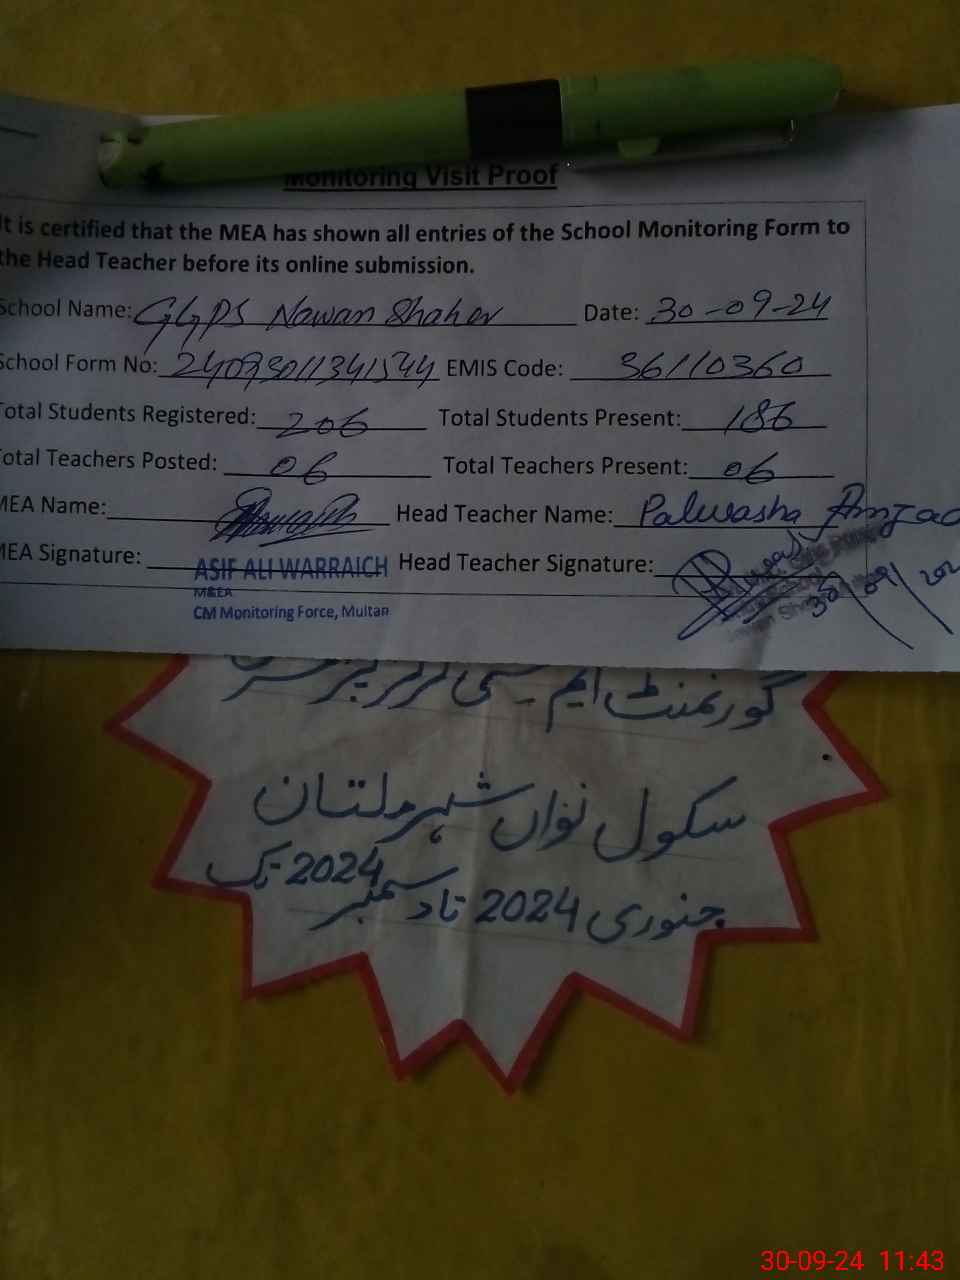 Monitoring Visit Proof
It is certified that the MEA has shown all entries of the School Monitoring Form to
the Head Teacher before its online submission.
School Name: GGPS Nawan Shaher Date: 30-09-24
School Form No: EMIS Code: 36110360
Total Students Registered: 206 Total Students Present: 186
Total Teachers Posted: 06 Total Teachers Present: 06
MEA Name: Head Teacher Name: Palwasha Amjad
MEA Signature: Head Teacher Signature:
ASIF ALI WARRAICH
M&EA
CM Monitoring Force, Multan
30/09/202
گورنمنٹ ایم سی گرلز پرائمری
سکول نواں شہر ملتان
جنوری 2024 تا دسمبر 2024 تک
30-09-24 11:43